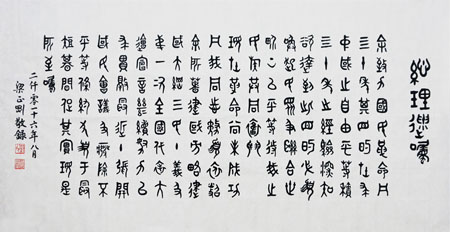 總理遺囑
余致力國民革命凡
四十年其目的在求
中國之自由平等積
四十年之經驗深知
欲達到此目的必須
喚起民眾及聯合世
界上以平等待我之
民族共同奮鬥
現在革命尚未成功
凡我同志務須依照
余所著建國方略建
國大綱三民主義及
第一次全國代表大
會宣言繼續努力以
求貫徹最近主張開
國民會議及廢除不
平等條約尤須於最
短期間促其實現是
所至囑
二仟零一十六年八月
梁正剛敬錄